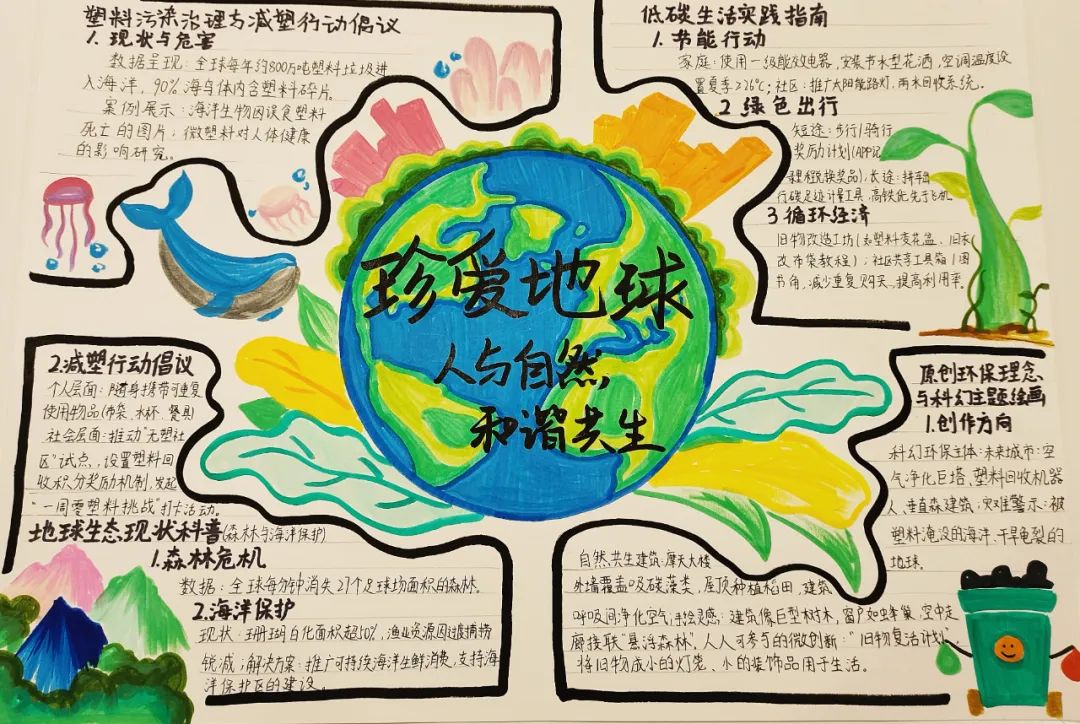 塑料污染治理与减塑行动倡议
1. 现状与危害
数据呈现：全球每年约800万吨塑料垃圾进
入海洋，90%海鸟体内含塑料碎片。
案例展示：海洋生物因误食塑料
死亡的图片；微塑料对人体健康
的影响研究。
低碳生活实践指南
1. 节能行动
家庭：使用一级能效电器，安装节水型花洒，空调温度设
置夏季≥26℃；社区：推广太阳能路灯，雨水回收系统。
2. 绿色出行
短途：步行/骑行
奖励计划(APP记
长途：
行碳足迹计算工具 高铁优先于飞机
3. 循环经济
旧物改造工坊(如塑料变花盆、旧衣
改布袋教程)；社区共享工具箱/图
书角，减少重复购买，提高利用率。
珍爱地球
人与自然
和谐共生
2.减塑行动倡议
个人层面：随身携带可重复
使用物品(布袋、水杯、餐具)
社会层面：推动“无塑社
区”试点，设置塑料回
收积分奖励机制，发起
“一周零塑料挑战”打卡活动。
地球生态现状科普(森林与海洋保护)
1.森林危机
数据：全球每分钟消失27个足球场面积的森林。
2.海洋保护
现状：珊瑚白化面积超50%，渔业资源因过度捕捞
锐减；解决方案：推广可持续海洋生鲜消费，支持海
洋保护区的建设。
原创环保理念
与科幻主题绘画
1.创作方向
科幻环保主体：未来城市：空
气净化巨塔，塑料回收机器
人、垂直森建筑；灾难警示：被
塑料淹没的海洋、干旱龟裂的
地球。
自然共生建筑：摩天大楼
外墙覆盖吸碳藻类，屋顶种植稻田，建筑
呼吸间净化空气；手绘灵感：建筑像巨型树木，窗户如蜂巢，空中走
廊接联“悬浮森林”。人人可参与的微创新：“旧物复活计划”
将旧物成小的灯笼、小的装饰品用于生活。